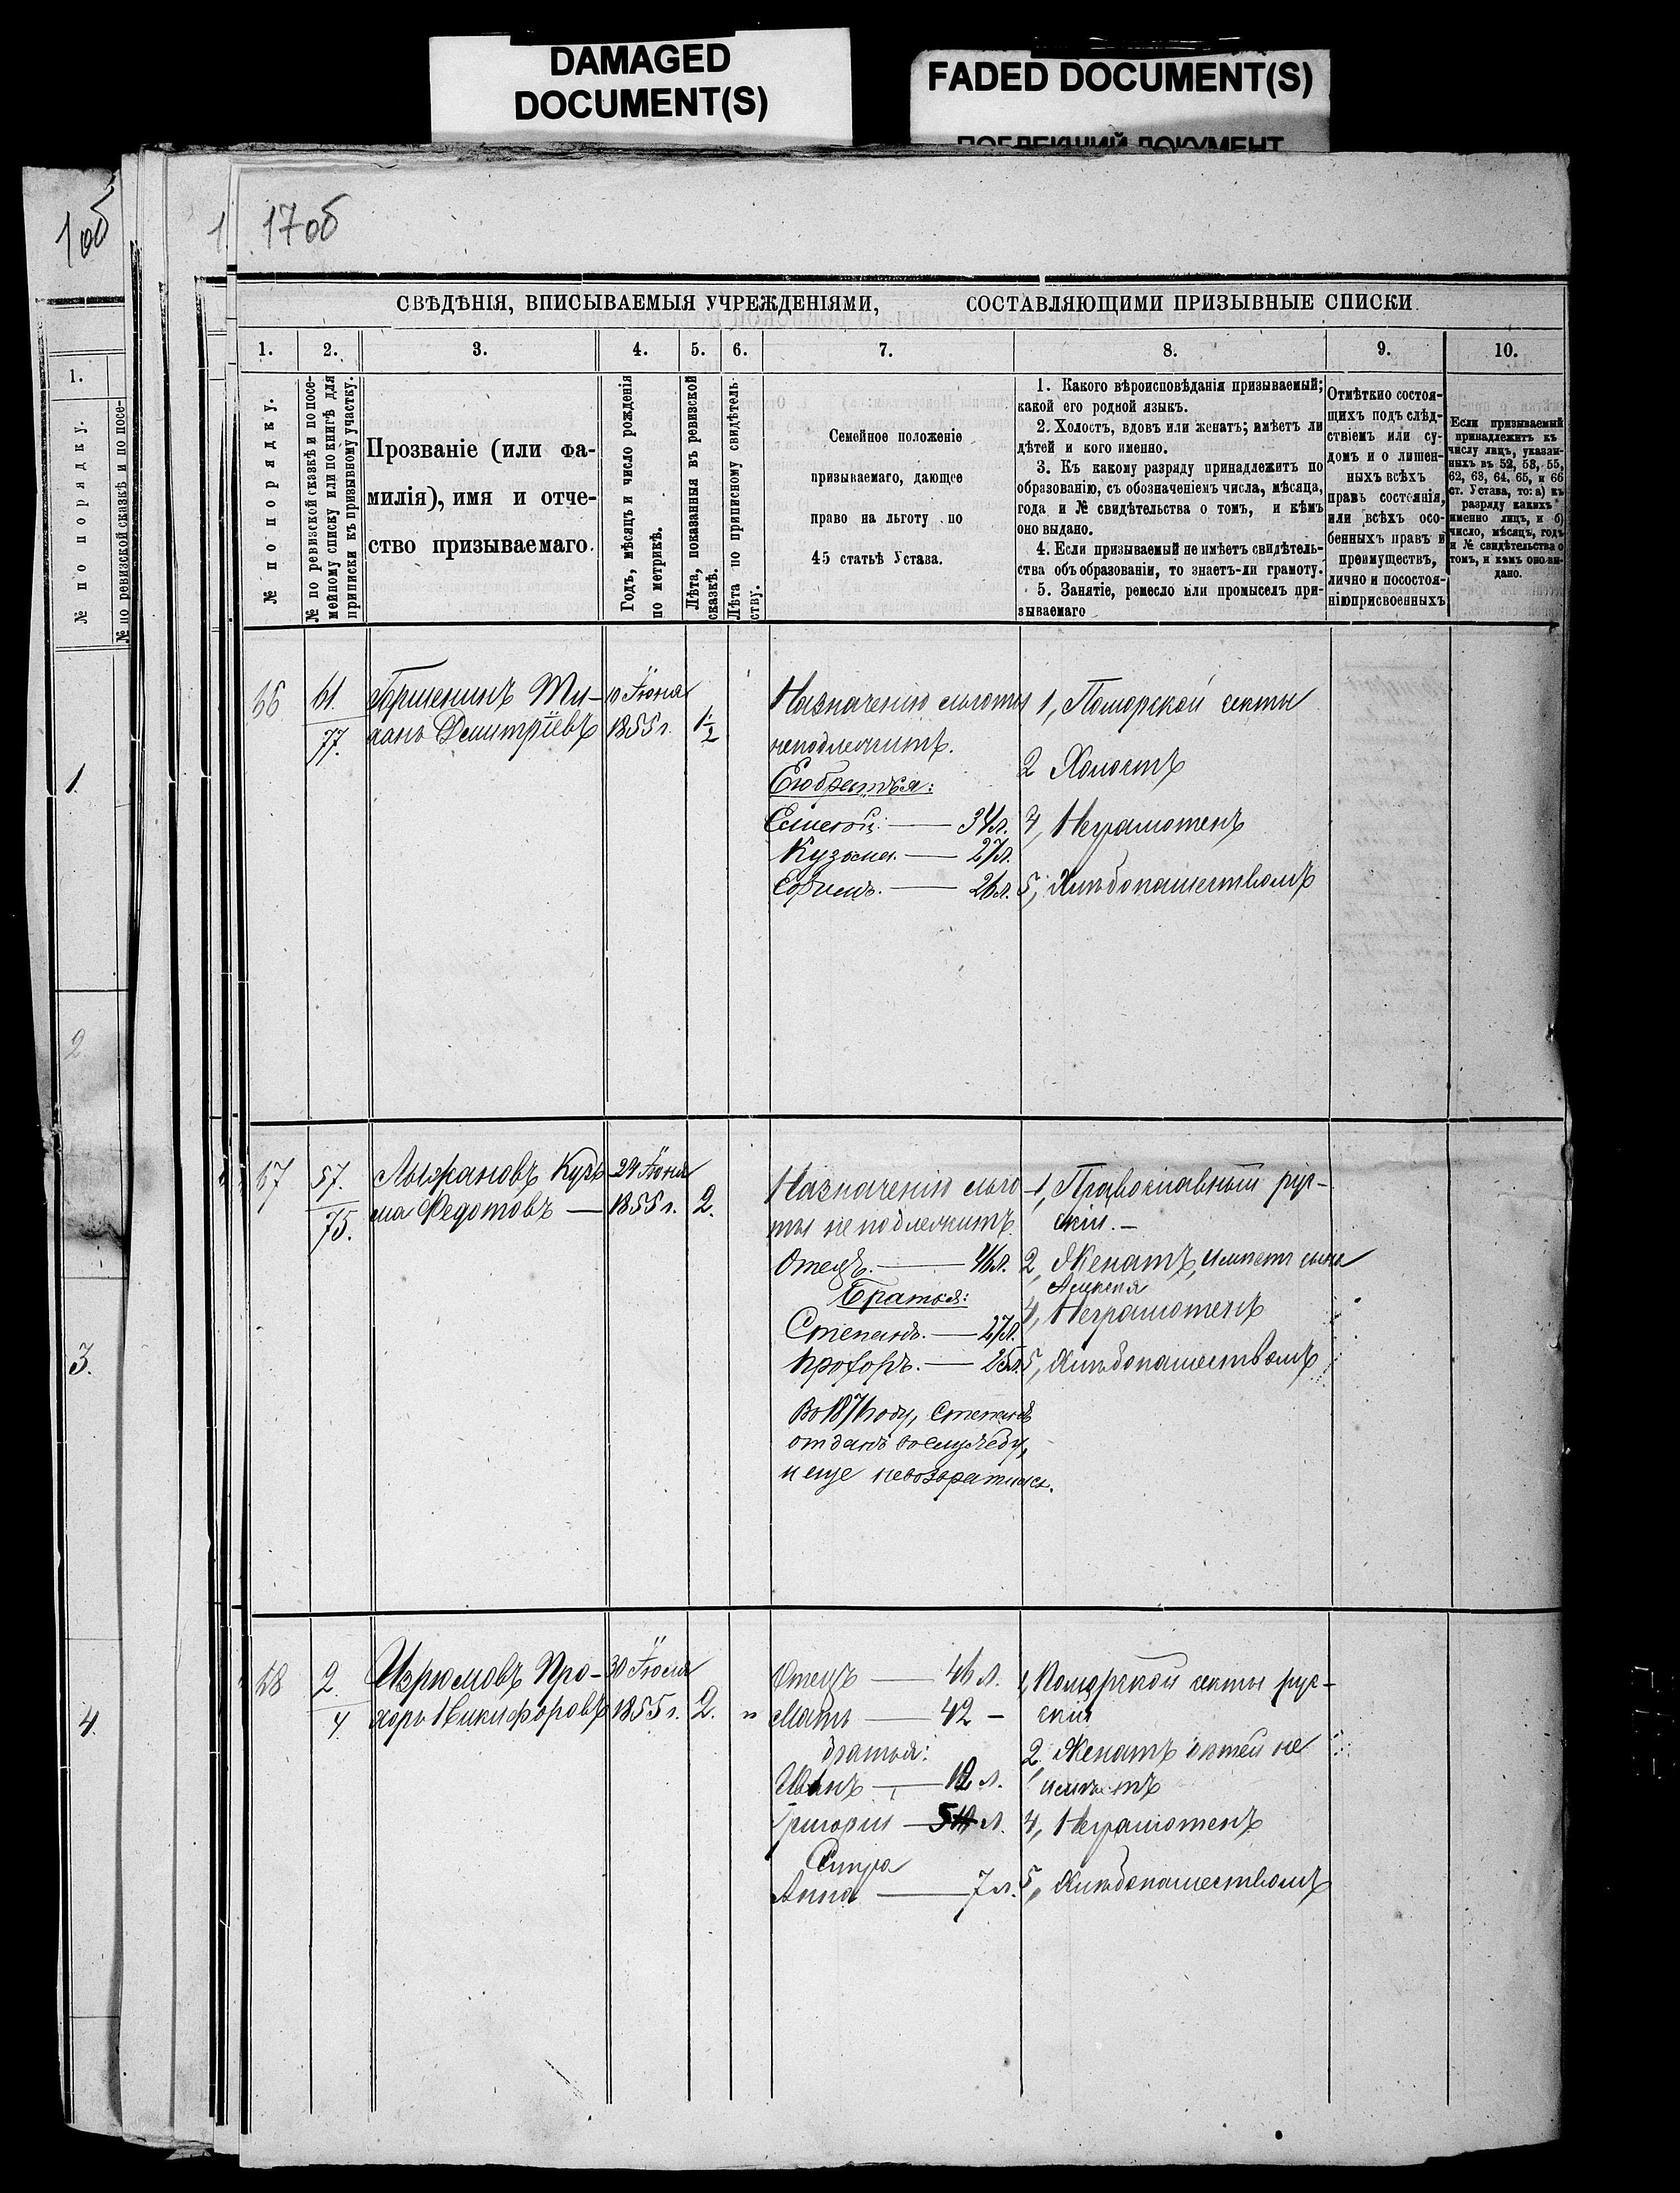 DAMAGED
DOCUMENT(S)
FADED DOCUMENT(S)
ПОБЛЕКШИЙ ДОКУМЕНТ
1об
17об
СВѢДѢНІЯ, ВПИСЫВАЕМЫЯ УЧРЕЖДЕНІЯМИ, СОСТАВЛЯЮЩИМИ ПРИЗЫВНЫЕ СПИСКИ
1. 2. 3. 4. 5. 6. 7. 8. 9. 10.
№ по порядку.
№ по ревизской сказкѣ и по посе-
мейному списку или по книгѣ для
приписки къ призывному участку.
Прозваніе (или фа-
милія), имя и отче-
ство призываемаго.
Годъ, мѣсяцъ и число рожденія
по метрикѣ.
Лѣта, показанныя въ ревизской
сказкѣ.
Лѣта по приписному свидѣтель-
ству.
Семейное положеніе
призываемаго, дающее
право на льготу по
45 статьѣ Устава.
1. Какого вѣроисповѣданія призываемый;
какой его родной языкъ.
2. Холостъ, вдовъ или женатъ; имѣетъ ли
дѣтей и кого именно.
3. Къ какому разряду принадлежитъ по
образованію, съ обозначеніемъ числа, мѣсяца,
года и № свидѣтельства о томъ, и кѣмъ
оно выдано.
4. Если призываемый не имѣетъ свидѣтель-
ства объ образованіи, то знаетъ-ли грамоту.
5. Занятіе, ремесло или промыселъ при-
зываемаго
Отмѣтки о состоя-
щихъ подъ слѣд-
ствіемъ или су-
домъ и о лишен-
ныхъ всѣхъ
правъ состоянія,
или всѣхъ осо-
бенныхъ правъ и
преимуществъ,
лично и по состоя-
нію присвоенныхъ
Если призываемый
принадлежитъ къ
числу лицъ, указан-
ныхъ въ 52, 53, 55,
62, 63, 64, 65, и 66
ст. Устава, то: а) къ
разряду какихъ
именно лицъ, и б)
число, мѣсяцъ, годъ
и № свидѣтельства о
томъ, и кѣмъ оно вы-
дано.
1.
№ по порядку.
№ по ревизской сказкѣ и по посе-
1.
2
3.
4.
61.
77.
Дмитріевъ
10 Іюня
1855 г.
1/2
Назначенію льготы
неподлежитъ.
Его братья:
Елисей — 34 л.
Кузьма — 27 л.
— 26 л.
1, Поморской секты
2 Холостъ
4, Неграмотенъ
5, Хлѣбопашествомъ
67
57.
75.
Лыжановъ Кузь-
ма Федотовъ —
24 Іюня
1855 г.
2.
Назначенію льго
ты не подлежитъ.
Отецъ — 46 л.
Братья:
Степанъ — 27 л.
Прохоръ — 25 л.
Во 187 году, Степанъ
отданъ въ службу,
и еще невозвратился.
1, Православный рус-
скій. —
2, Женатъ, имѣетъ сына
Алексѣя
4, Неграмотенъ
5, Хлѣбопашествомъ
68
2.
4.
Изрюмовъ Про-
хоръ Никифоровъ
30 Іюня
1855 г.
2.
Отецъ — 46 л.
Мать — 42 —
братья:
Иванъ — 12 л.
Григорій — 5 л.
Сестра
Анна — 7 л.
1, Поморской секты рус-
скій
2, Женатъ дѣтей не
имѣетъ
4, Неграмотенъ
5, Хлѣбопашествомъ